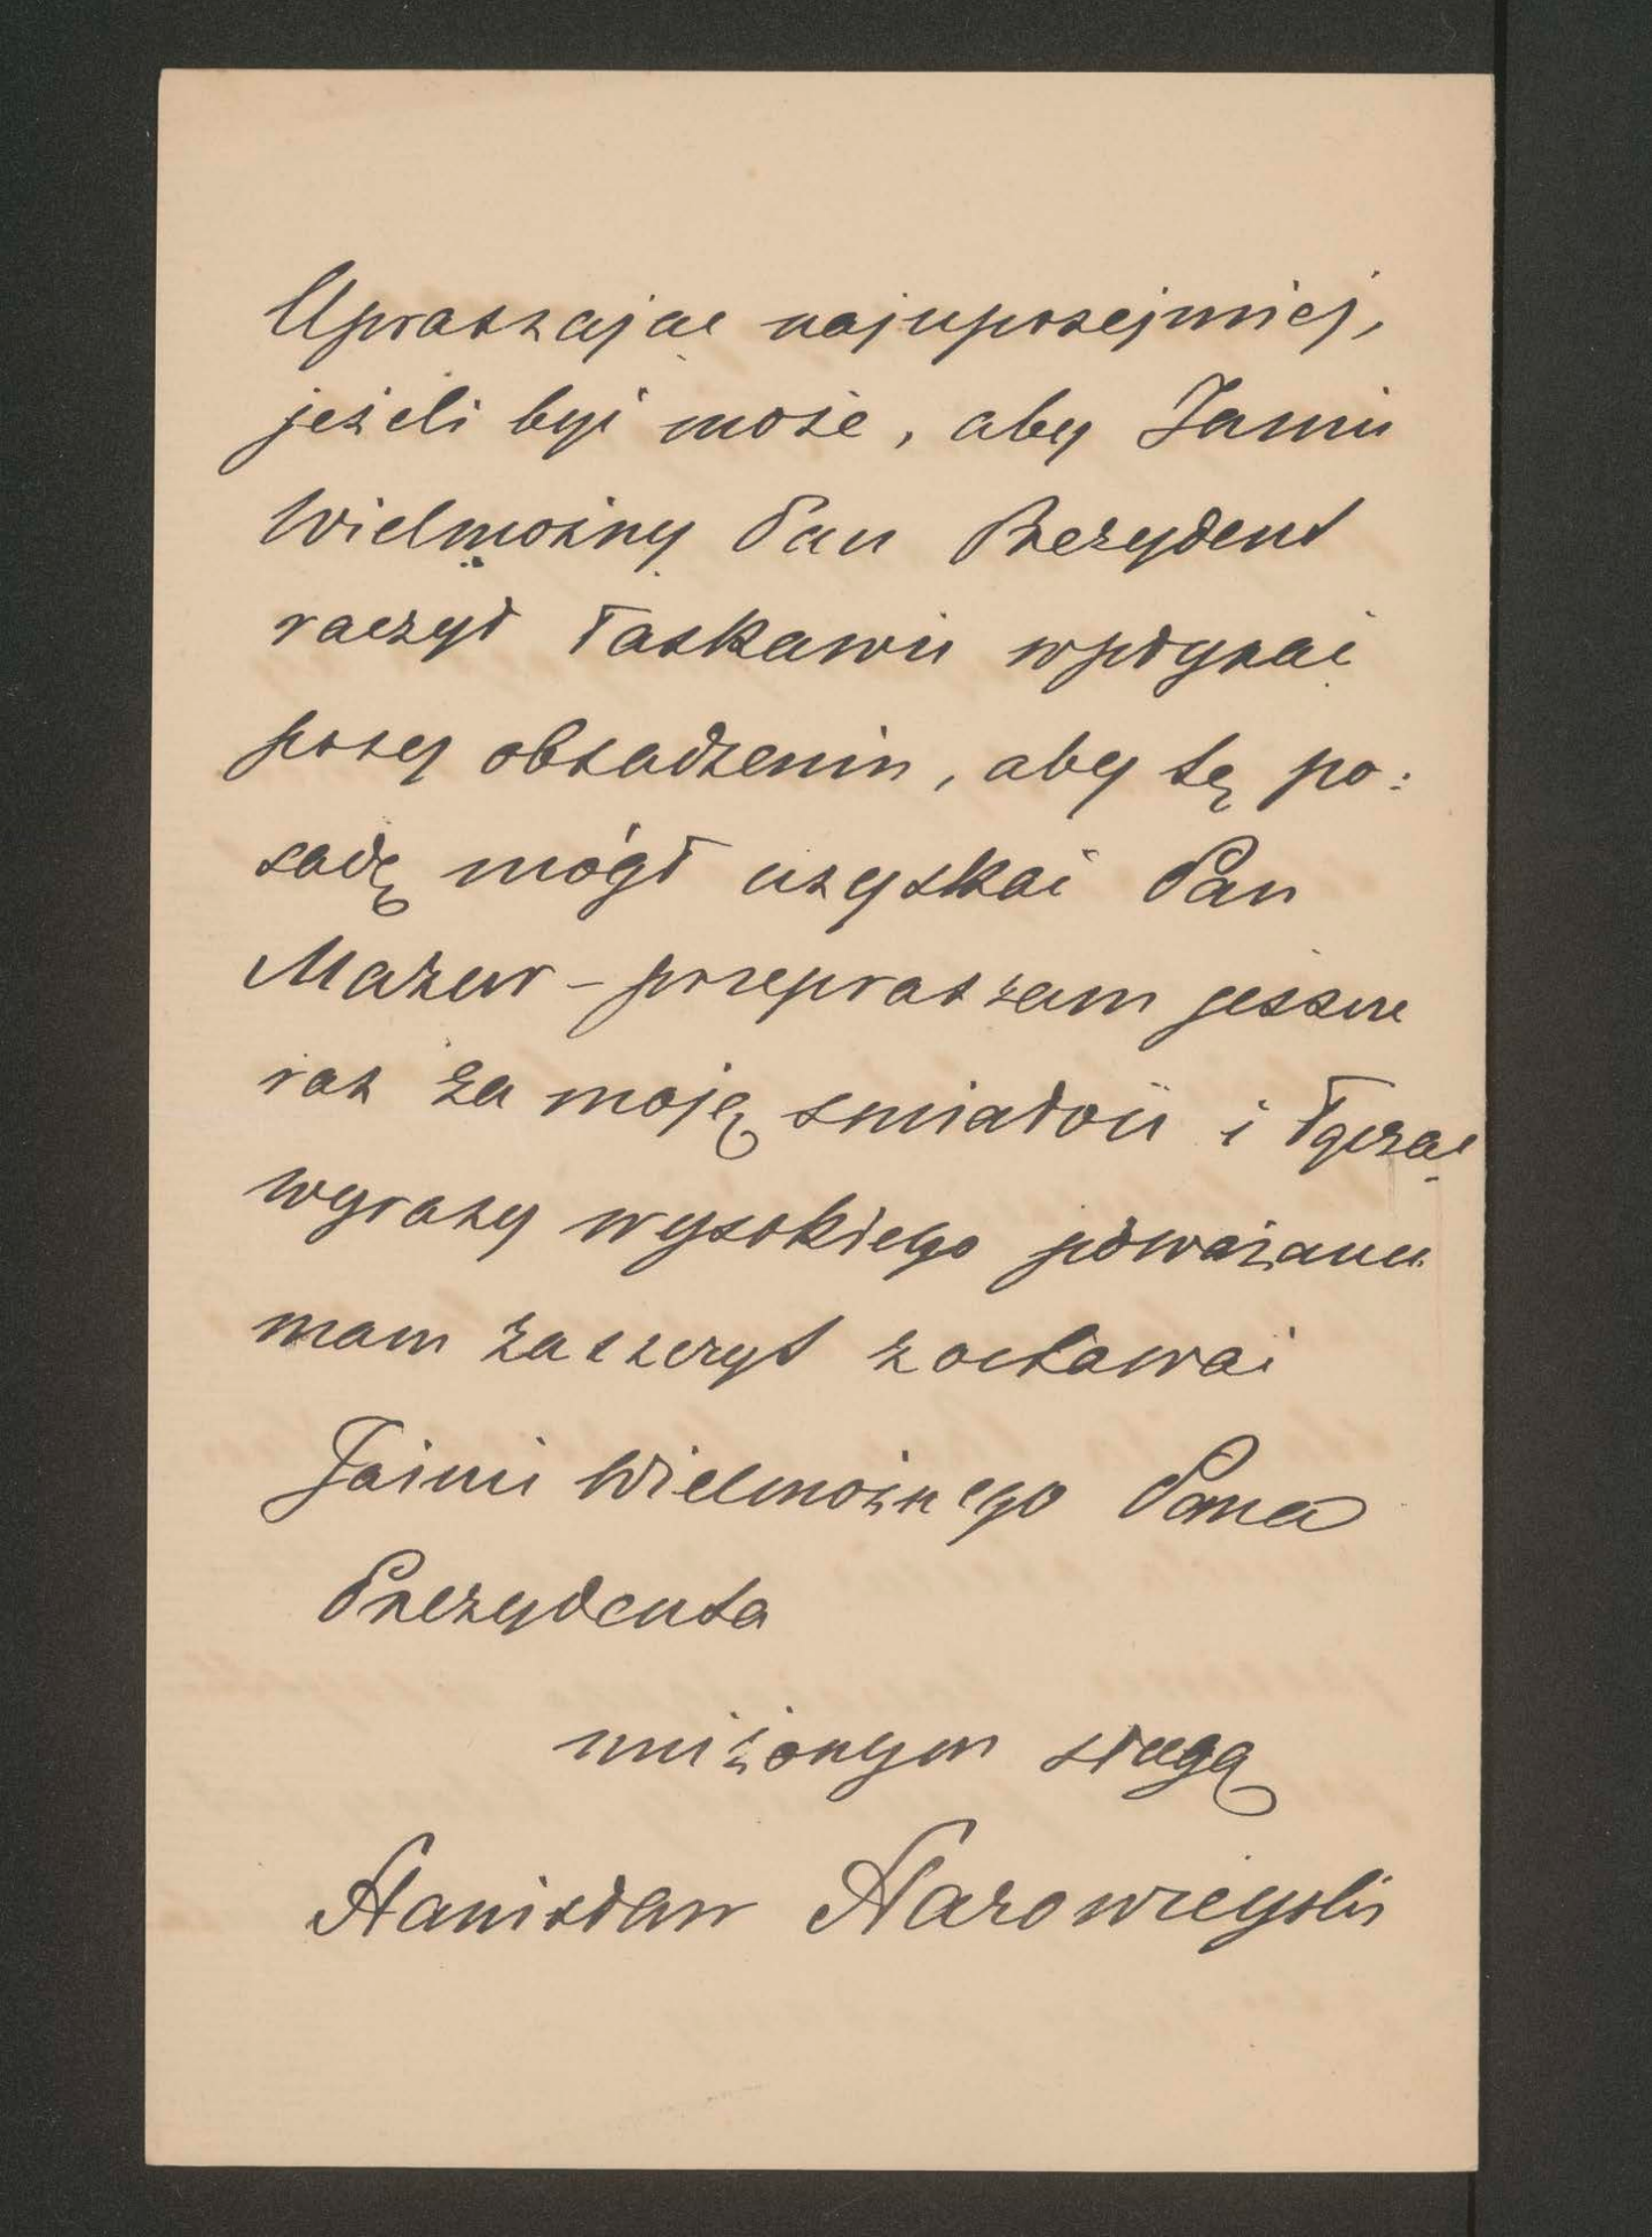 Upraszając najuprzejmiej,
jeżeli być może, aby Jaśnie
Wielmożny Pan Prezydent
raczył łaskawie wpłynąć
przy obsadzeniu, aby tę po:
sadę mógł uzyskać Pan
Mazur – przepraszam jeszcze
raz za moję śmiałość i łącząc
wyrazy wysokiego poważania
mam zaszczyt zostawać
Jaśnie Wielmożnego Pana
Prezydenta
uniżonym sługą
Stanisław Starowieyski